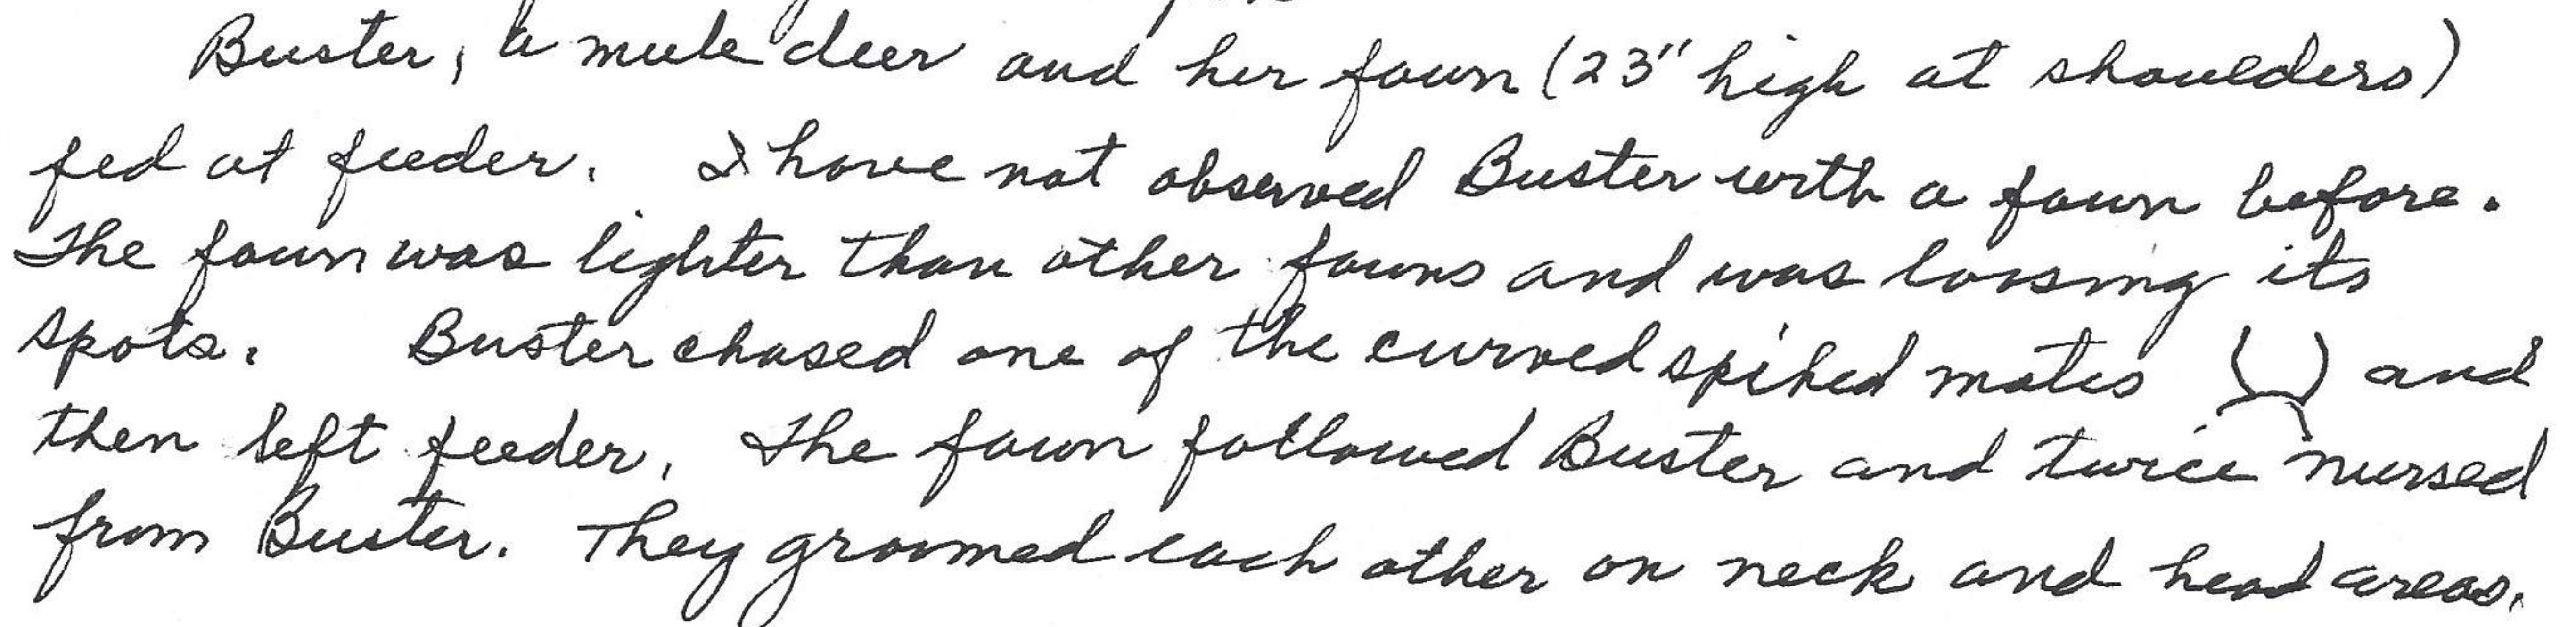 Buster, a mule deer and her fawn (23" high at shoulders)
fed at feeder. I have not observed Buster with a fawn before.
The fawn was lighter than other fawns and was loosing its
spots. Buster chased one of the curved spiked mates and
then left feeder. The fawn followed Buster and twice nursed
from Buster. They groomed each other on neck and head areas.